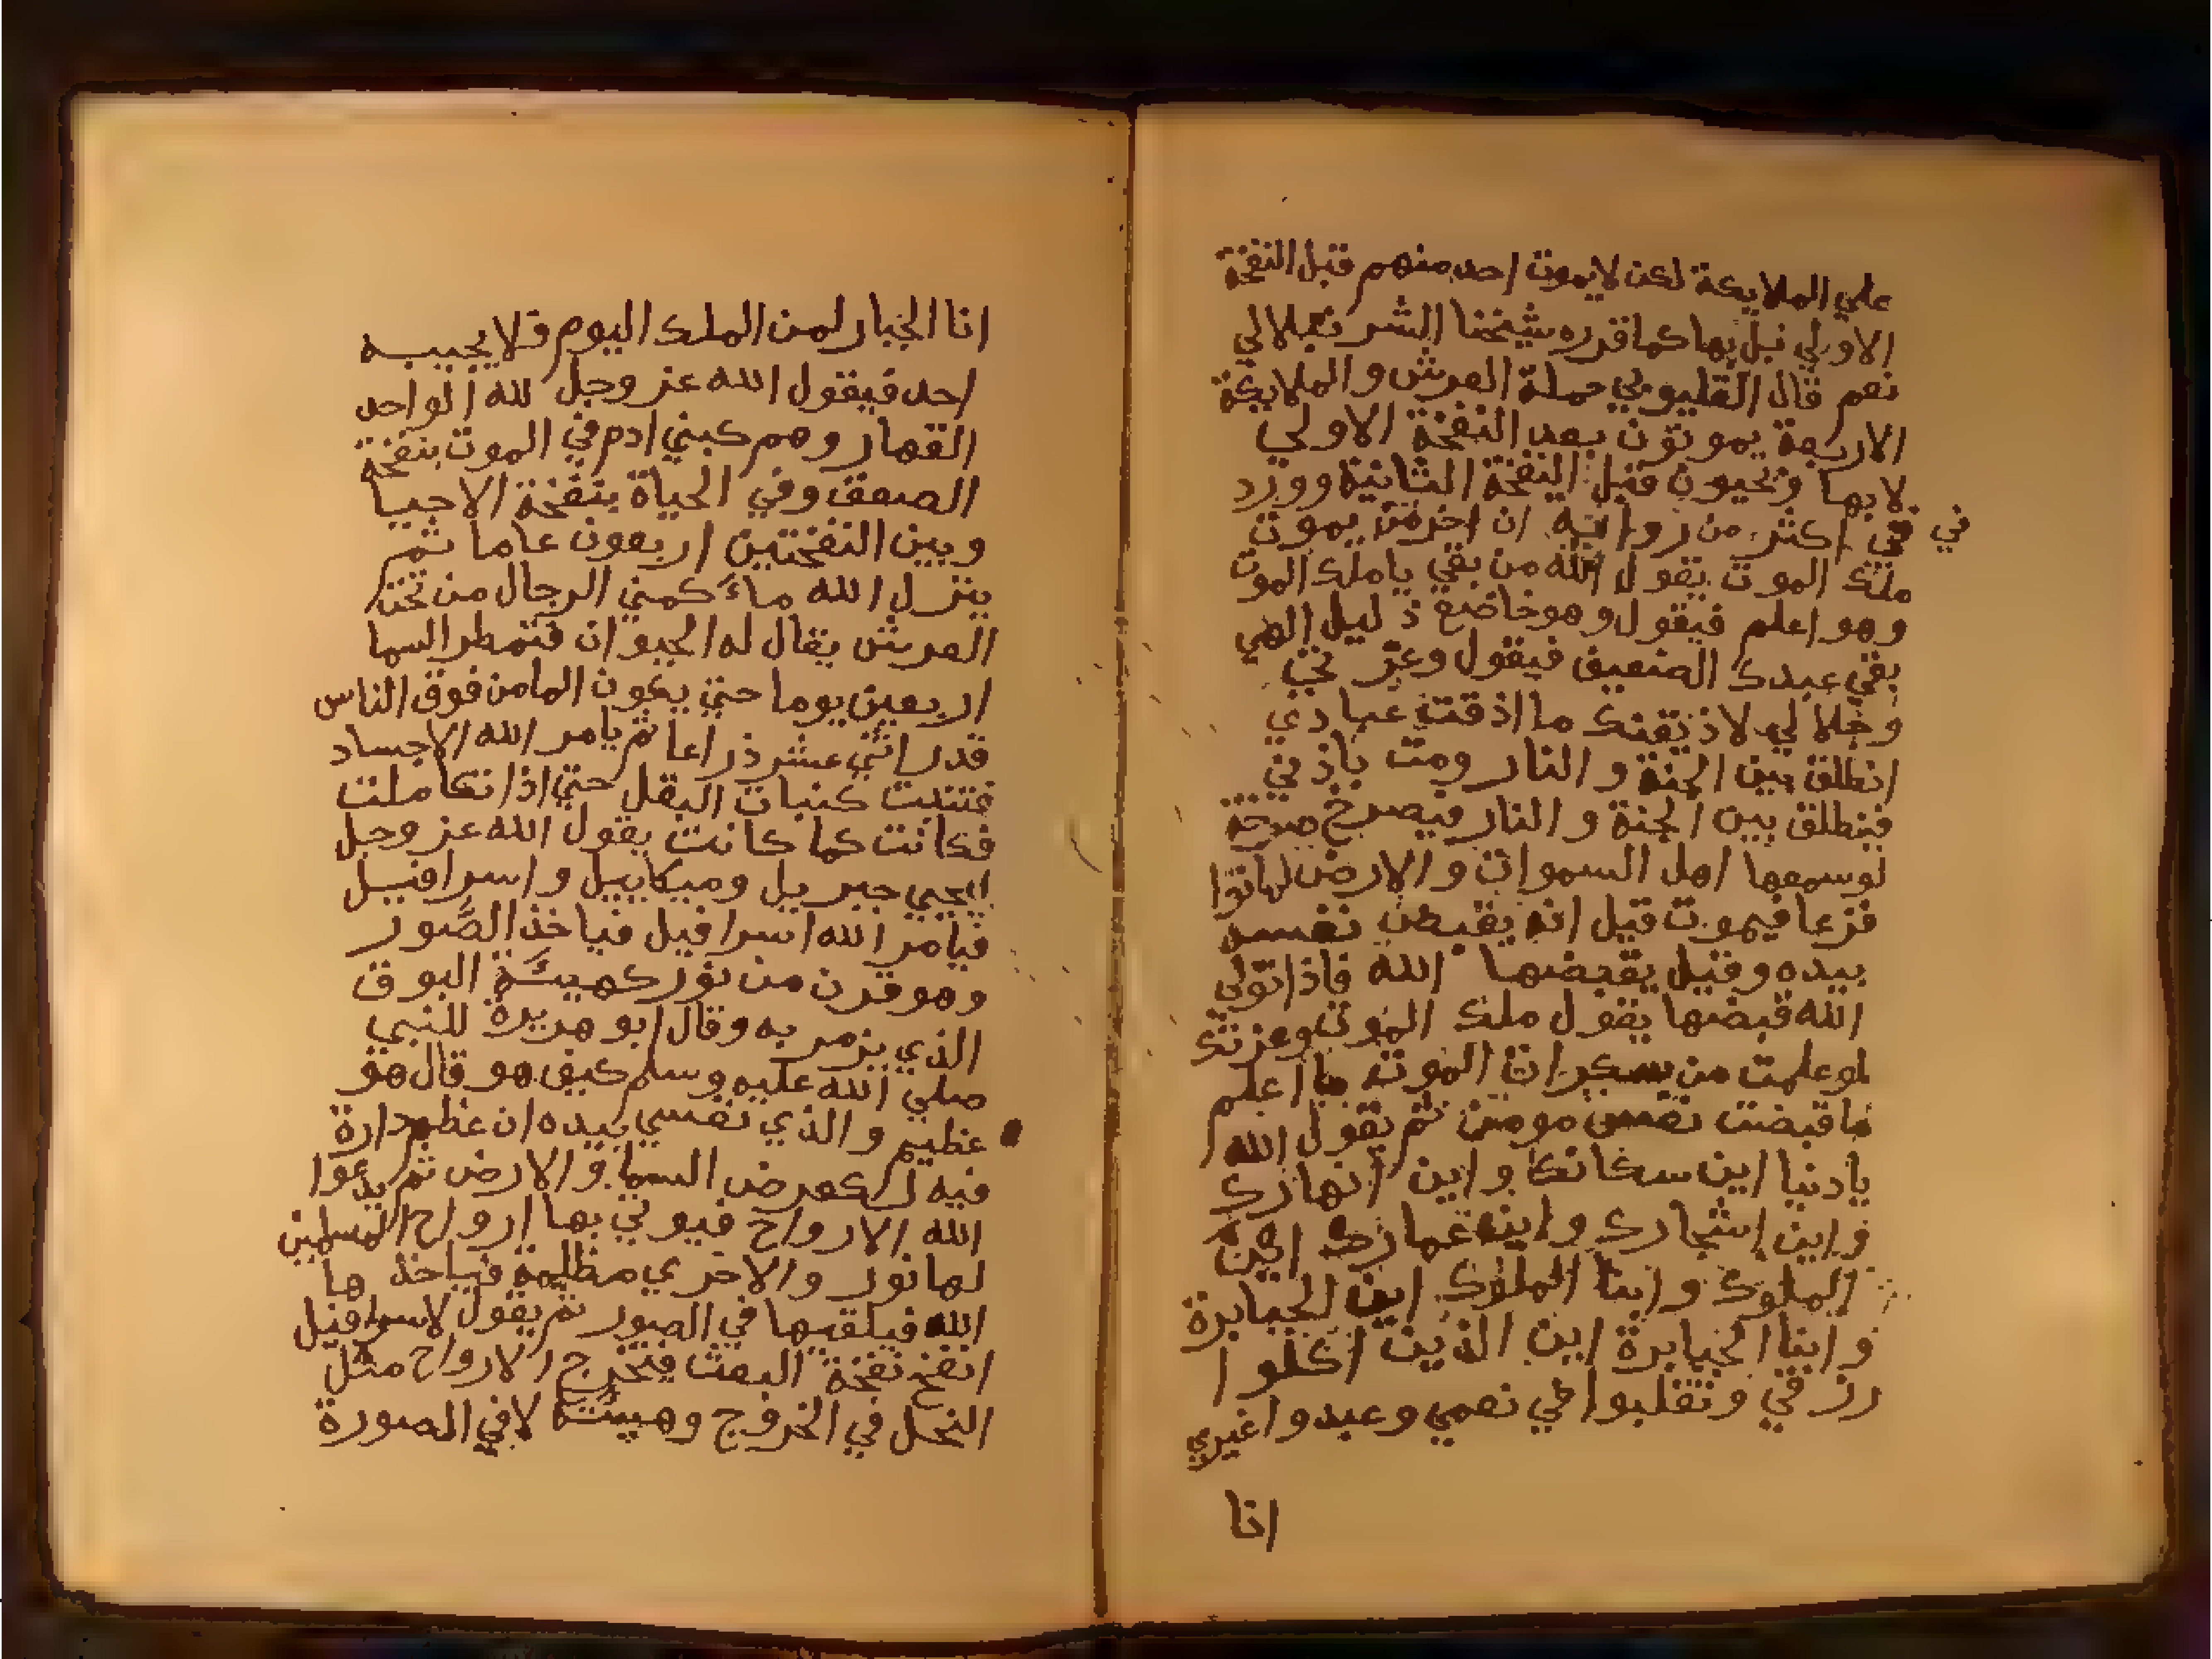 علي الملايكة لكن لا يموت احد منهم قبل النفخة
الاولي بل بها كما قرره شيخنا الشر نبلالي
نعم قال القليوبي حملة العرش والملايكة
الاربعة يموتون بعد النفخة الاولي
لا بها ويحيون قبل النفخة الثانية وورد
في اكثر من رواية ان اخر من يموت
في
ملك الموت يقول الله من بقي يا ملك الموت
وهو اعلم فيقول وهو خاضع ذليل الهي
بقي عبدك الضعيف فيقول وعزتي
وجلالي لاذيقنك ما اذقت عبادي
انطلق بين الجنة والنار ومت باذني
فينطلق بين الجنة والنار فيصرخ صرخة
لوسمعها اهل السموات والارض لماتوا
فزعا فيموت قيل انه يقبض نفسه
بيده وقيل يقبضها الله فاذا تولي
الله قبضها يقول ملك الموت وعزتك
لو علمت من سكرات الموت ما اعلم
ما قبضت نفس مومن ثم يقول الله
يا دنيا اين سكانك واين انهارك
واين اشجارك واين عمارك اين
الملوك وابنا الملوك اين الجبابرة
وابنا الجبابرة اين الذين اكلوا
رزقي وتقلبوا في نعمي وعبدوا غيري
انا
انا الجبار لمن الملك اليوم فلا يجيبه
احد فيقول الله عز وجل لله الواحد
القهار وهم كبني ادم في الموت بنفخة
الصعق وفي الحياة بنفخة الاحيا
وبين النفختين اربعون عاما ثم
ينزل الله ماء كمني الرجال من تحت
العرش يقال له الحيوان فتمطر السما
اربعين يوما حتي يكون الما من فوق الناس
قدر اثني عشر ذراعا ثم يامر الله الاجساد
فتنبت كنبات البقل حتي اذا تكاملت
فكانت كما كانت يقول الله عز وجل
ليحيي جبريل وميكاييل واسرافيل
فيامر الله اسرافيل فياخذ الصور
وهو قرن من نور كهيئة البوق
الذي يزمر به وقال ابو هريرة للنبي
صلي الله عليه وسلم كيف هو قال هو
عظيم والذي نفسي بيده ان عظم دارة
فيه لكعرض السما والارض ثم يدعوا
الله الارواح فيوتي بها ارواح المسلمين
لها نور والاخري مظلمة فياخذ ها
الله فيلقيها في الصور ثم يقول لاسرافيل
انفخ نفخة البعث فتخرج الارواح مثل
النحل في الخروج وهيئته لا في الصورة